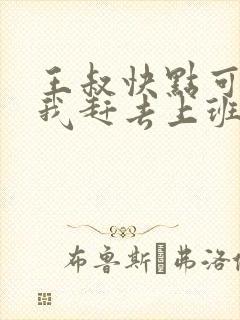 王叔快點可
我赶去上班
布鲁斯 弗洛